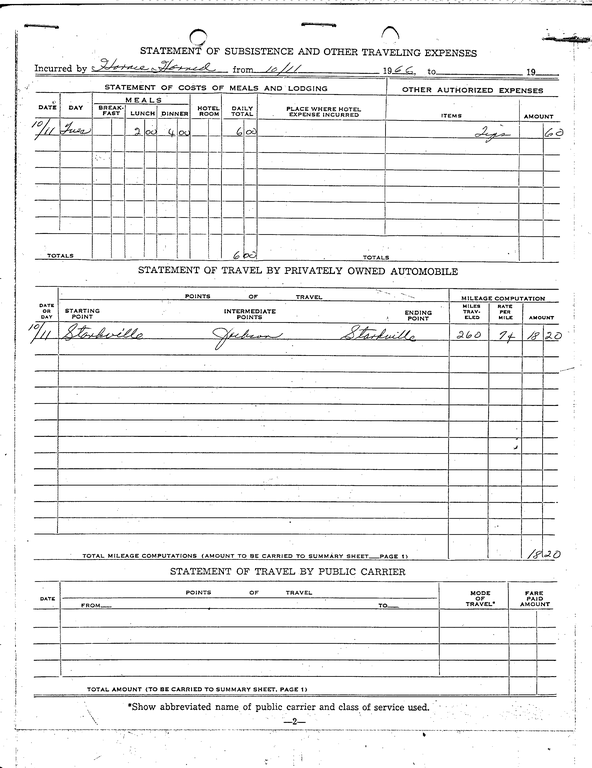 STATEMENT OF SUBSISTENCE AND OTHER TRAVELING EXPENSES
Incurred by Horace Harned from 10/11 1966, to 19
STATEMENT OF COSTS OF MEALS AND LODGING OTHER AUTHORIZED EXPENSES
DATE DAY MEALS BREAK-FAST LUNCH DINNER HOTEL ROOM DAILY TOTAL PLACE WHERE HOTEL EXPENSE INCURRED ITEMS AMOUNT
10/11 Tues 2 00 4 00 6 00 Tips 60
TOTALS 6 00 TOTALS
STATEMENT OF TRAVEL BY PRIVATELY OWNED AUTOMOBILE
DATE OR DAY POINTS OF TRAVEL MILEAGE COMPUTATION
STARTING POINT INTERMEDIATE POINTS ENDING POINT MILES TRAV-ELED RATE PER MILE AMOUNT
10/11 Starkville Jackson Starkville 260 7¢ 18 20
TOTAL MILEAGE COMPUTATIONS (AMOUNT TO BE CARRIED TO SUMMARY SHEET—PAGE 1) 18 20
STATEMENT OF TRAVEL BY PUBLIC CARRIER
DATE POINTS OF TRAVEL MODE OF TRAVEL* FARE PAID AMOUNT
FROM— TO—
TOTAL AMOUNT (TO BE CARRIED TO SUMMARY SHEET, PAGE 1)
*Show abbreviated name of public carrier and class of service used.
—2—